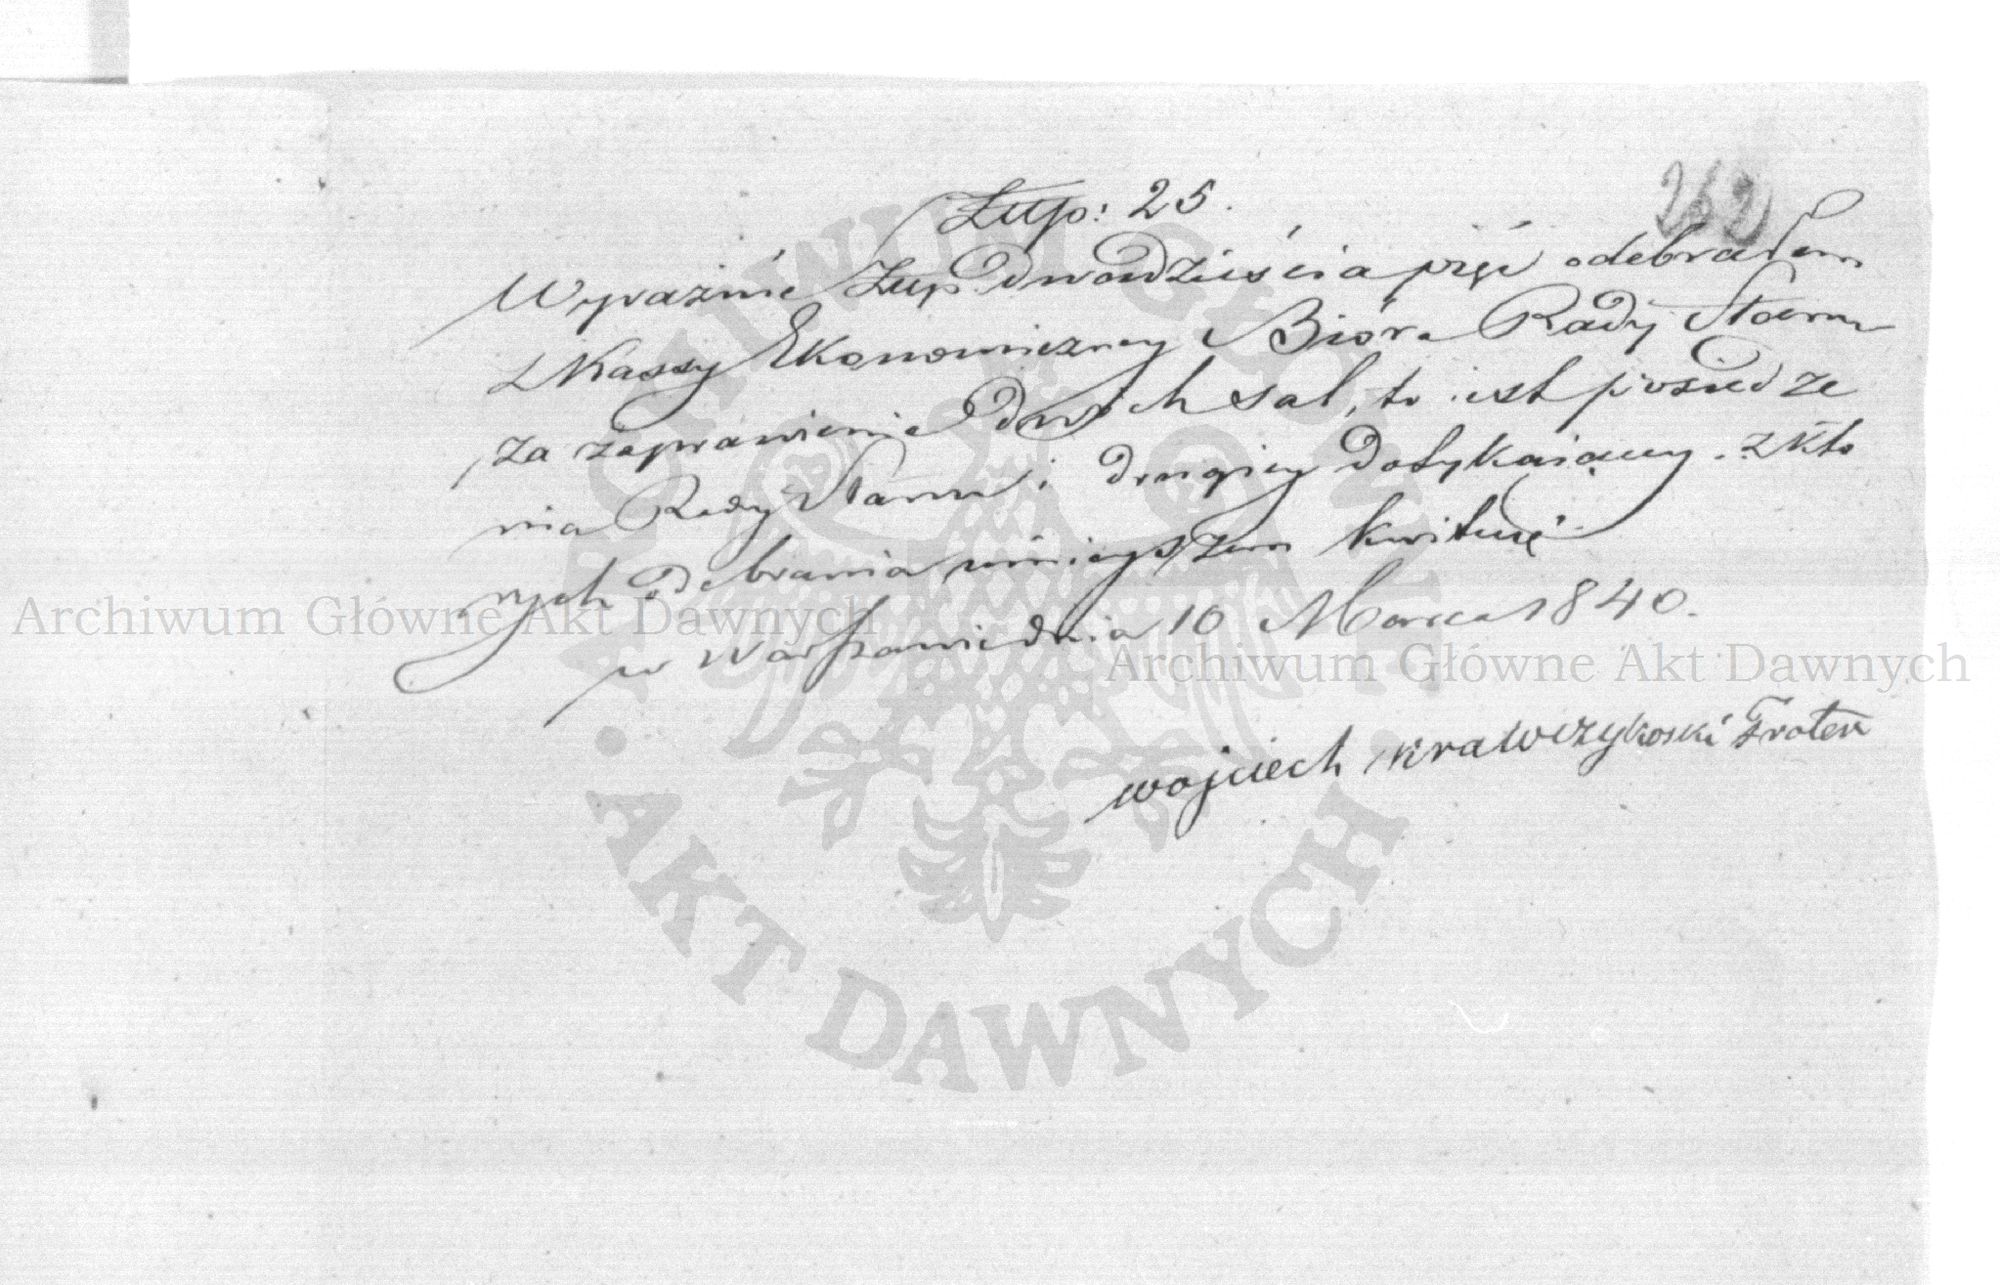 262
Złłp: 25.
Wyraźnie Złłp. dwadzieścia pięć odebrałem
z Kassy Ekonomiczney Bióra Rady Stanu
za zaprawienie dwóch sal, to iest posiedze
nia Rady Stanu i drugiey dotykaiącey. z któ
rych odebrania ninieyszem kwituię.
w Warszawie dnia 10 Marca 1840.
wojciech krawczykoski Froter
Archiwum Główne Akt Dawnych
Archiwum Główne Akt Dawnych
ARCHIWUM GŁÓWNE · AKT DAWNYCH ·